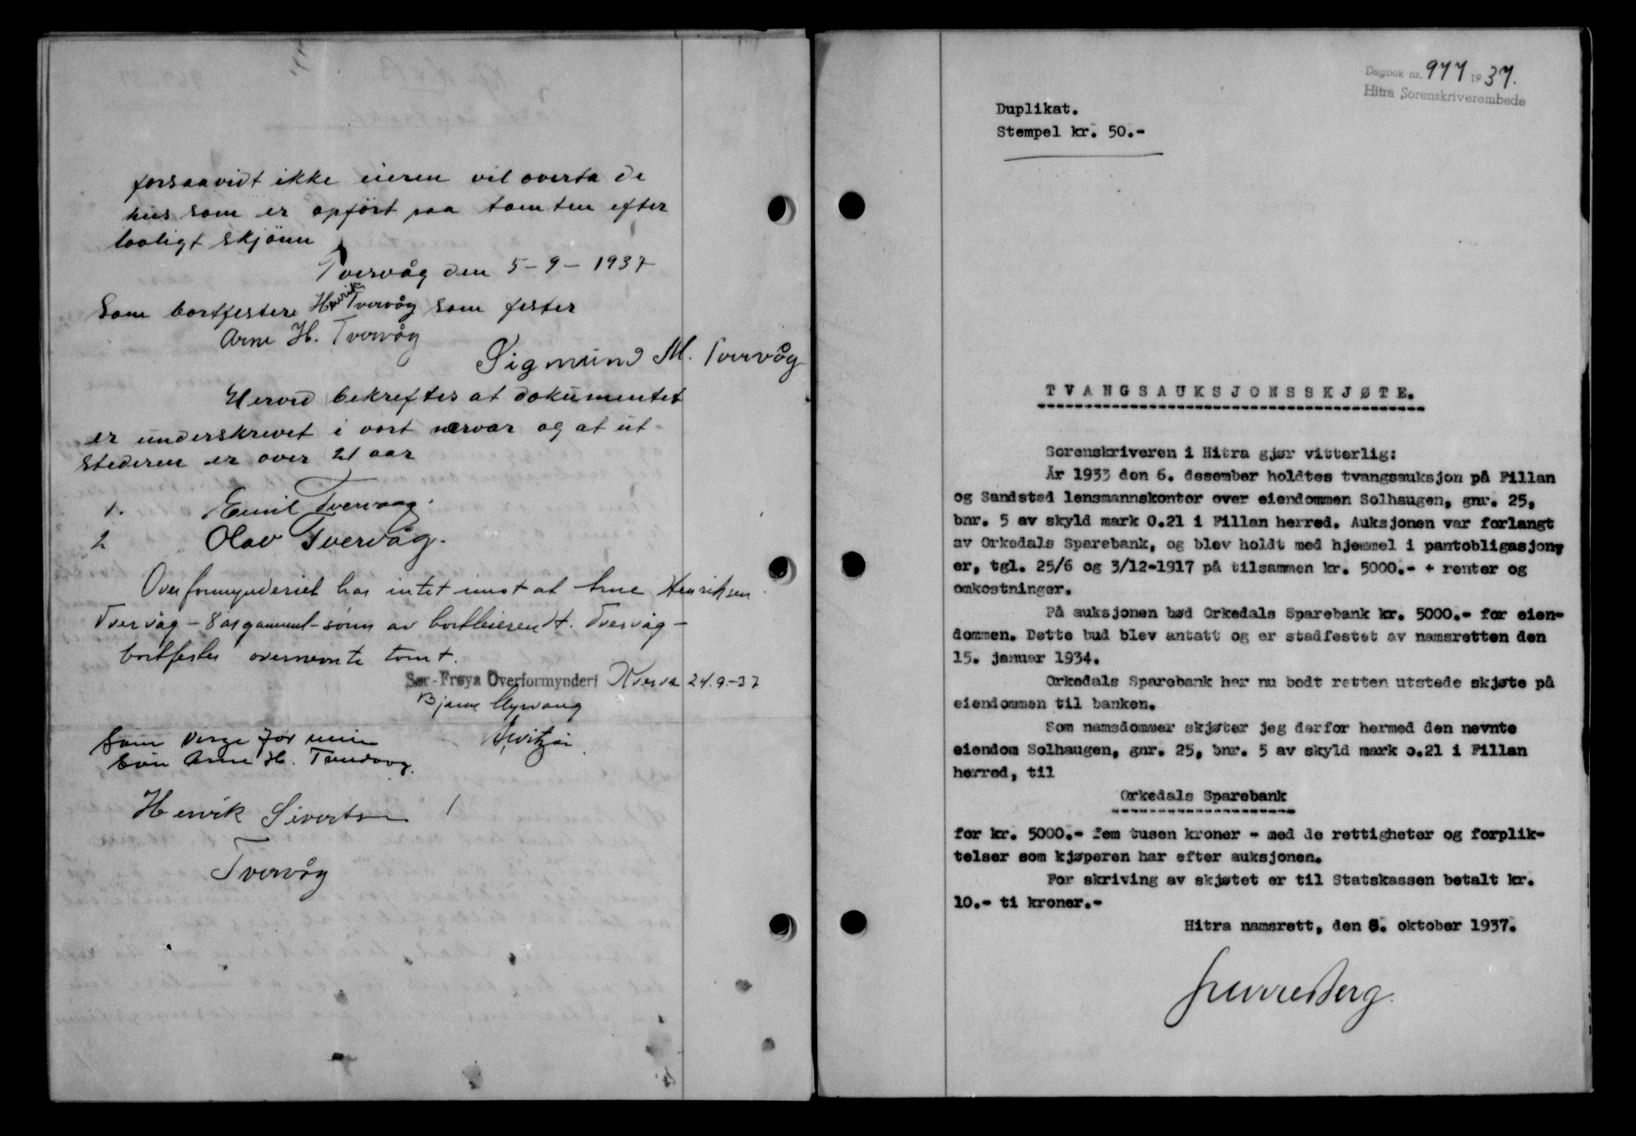 forsaavidt ikke eieren vil overta de
hus som er opført paa tomten efter
lovligt skjønn
Tvervåg den 5-9-1937
Som bortfestere Henrik Tvervåg som fester
Arne H. Tvervåg
Sigmund M. Tvervåg
Herved bekreftes at dokumentet
er underskrevet i vort nærvær og at ut
stederen er over 21 aar
1. Emil Tvervaag.
2 Olav Tvervåg.
Overformynderiet har intet imot at Arne Henriksen
Tvervåg - 8 år gammel - sønn av bortleieren H. Tvervåg -
bortfester ovennevnte tomt.
Sør-Frøya Overformynderi Kverva 24.9.-37
Bjarne
Som verge for min
Søn Arne H.
Henrik Sivertsen
Tvervåg
Dagbok nr. 977 1937.
Hitra Sorenskriverembede
Duplikat.
Stempel kr. 50.-
TVANGSAUKSJONSSKJØTE.
Sorenskriveren i Hitra gjør vitterlig:
År 1933 den 6. desember holdtes tvangsauksjon på Fillan
og Sandstad lensmannskontor over eiendommen Solhaugen, gnr. 25,
bnr. 5 av skyld mark 0.21 i Fillan herred. Auksjonen var forlangt
av Orkedals Sparebank, og blev holdt med hjemmel i pantobligasjon-
er, tgl. 25/6 og 3/12-1917 på tilsammen kr. 5000.- + renter og
omkostninger.
På auksjonen bød Orkedals Sparebank kr. 5000.- for eien-
dommen. Dette bud blev antatt og er stadfestet av namsretten den
15. januar 1934.
Orkedals Sparebank har nu bedt retten utstede skjøte på
eiendommen til banken.
Som namsdommer skjøter jeg derfor hermed den nevnte
eiendom Solhaugen, gnr. 25, bnr. 5 av skyld mark 0.21 i Fillan
herred, til
Orkedals Sparebank
for kr. 5000.- fem tusen kroner - med de rettigheter og forplik-
telser som kjøperen har efter auksjonen.
For skriving av skjøtet er til Statskassen betalt kr.
10.- ti kroner.-
Hitra namsrett, den 8. oktober 1937.